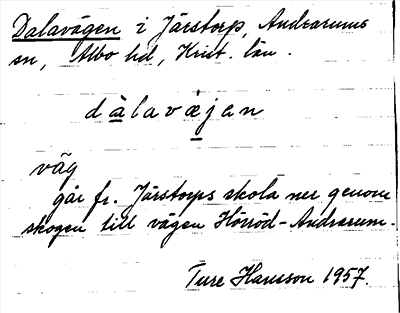 Dalavägen i Järstorp, Andrarums
sn, Albo hd, Krist. län.
dàlavæjen
väg
går fr. Järstorps skola ner genom
skogen till vägen Hörröd-Andrarum.
Ture Hansson 1957.